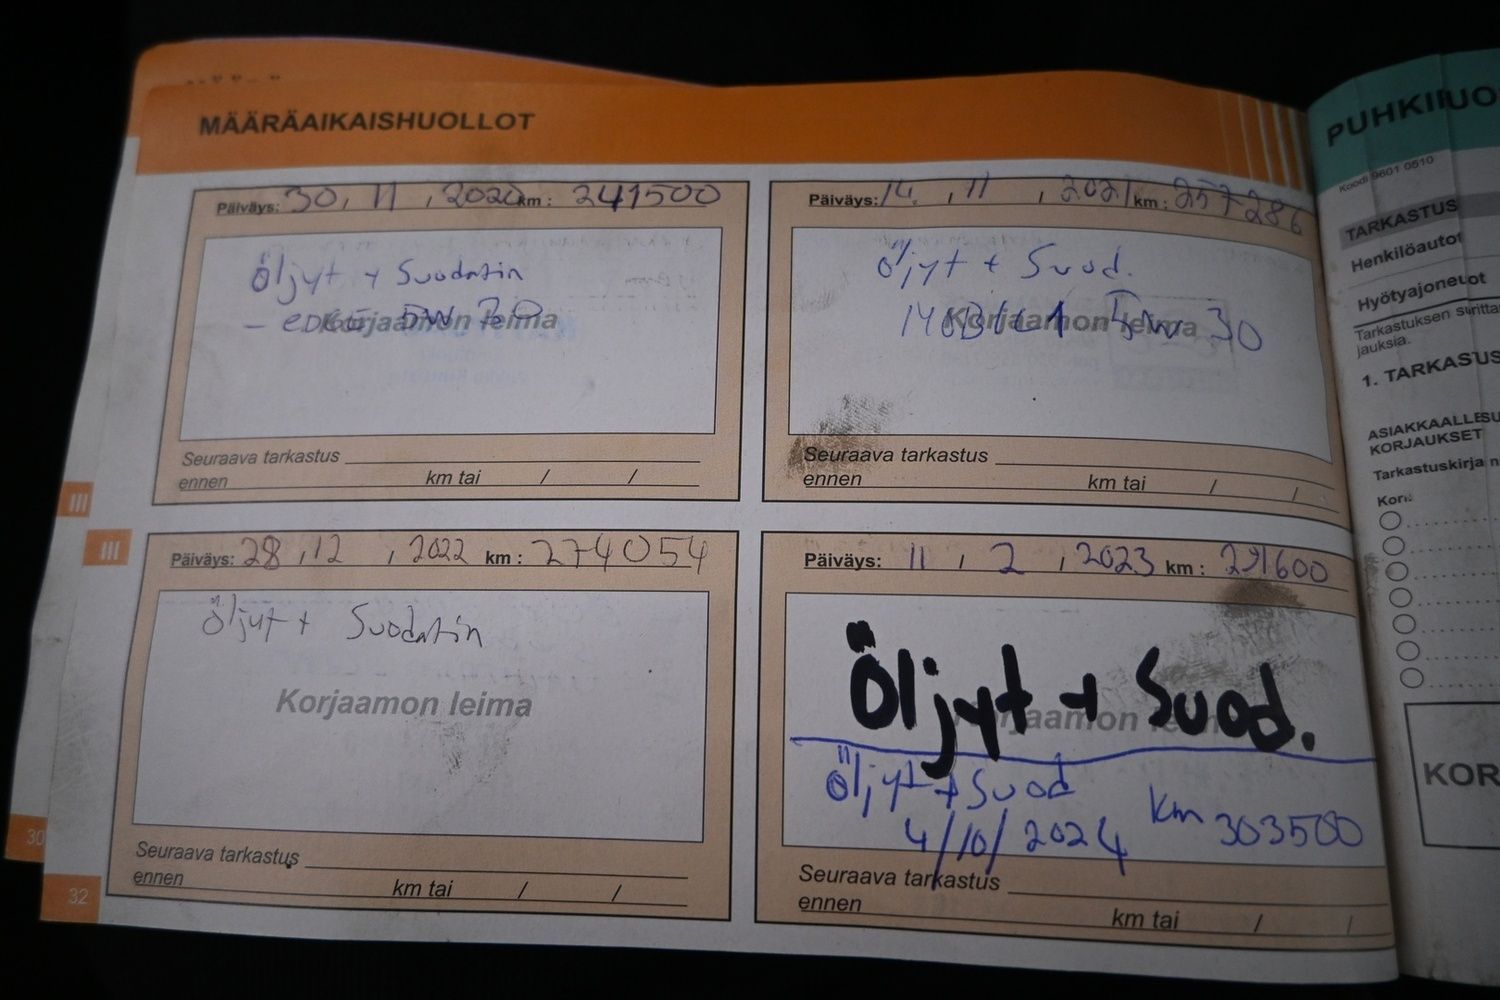 MÄÄRÄAIKAISHUOLLOT
Päiväys: 30, 11, 2020 km: 241500
Öljyt + Suodatin
- EDGE 5W 30
Korjaamon leima
Seuraava tarkastus
ennen km tai / /
Päiväys: 14, 11, 2021 km: 257286
Öljyt + Suod.
MOBIL 1 5W 30
Korjaamon leima
Seuraava tarkastus
ennen km tai / /
III
III
Päiväys: 28, 12, 2022 km: 274054
Öljyt + Suodatin
Korjaamon leima
Seuraava tarkastus
ennen km tai / /
Päiväys: 11, 2, 2023 km: 291600
Öljyt + Suod.
Korjaamon leima
Öljyt + Suod
4/10/2024 km 303500
Seuraava tarkastus
ennen km tai / /
30
32
Koodi 9601 0510
TARKASTUS
Henkilöautot
Hyötyajoneuvot
Tarkastuksen
jauksia.
1.
KORJAUKSET